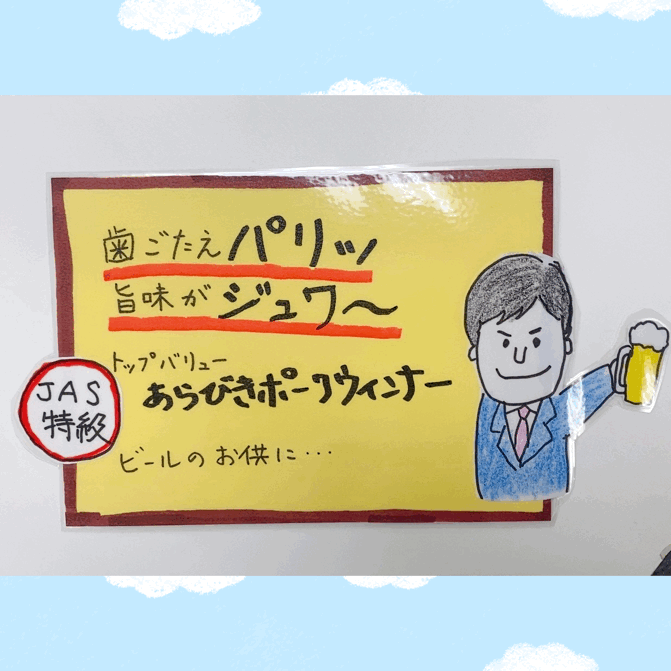 歯ごたえパリッ
旨味がジュワ〜
トップバリュー
あらびきポークウィンナー
JAS
特級
ビールのお供に…